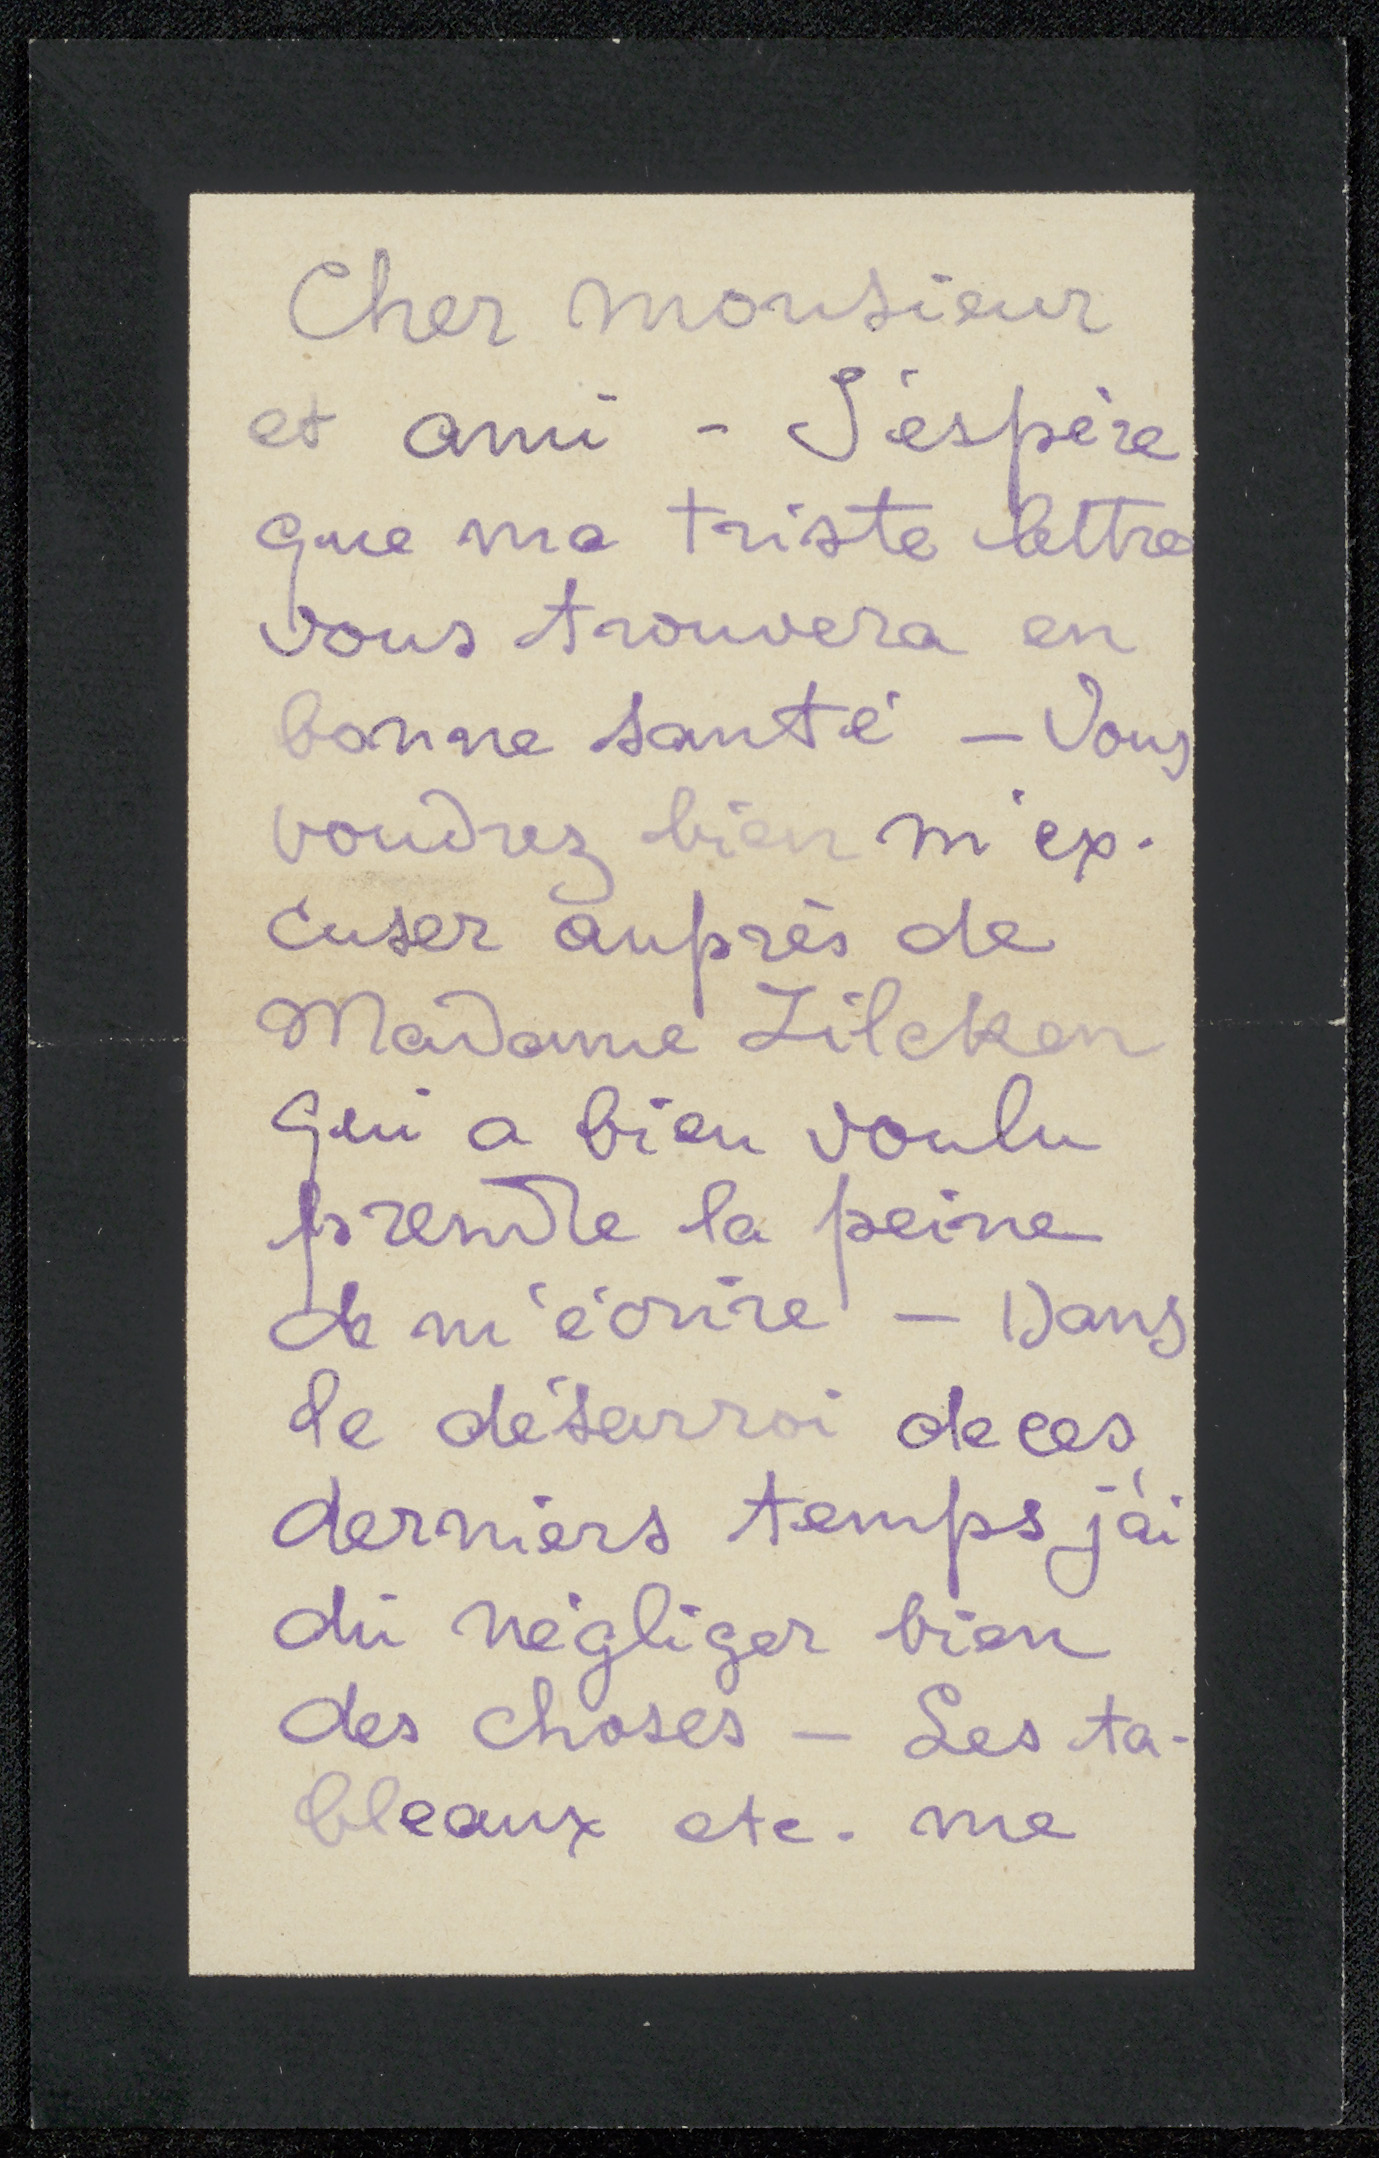 Cher monsieur
et ami - J'éspère
que ma triste lettre
vous trouvera en
bonne santé - Vous
voudrez bien m'ex-
cuser auprès de
Madame Zilcken
qui a bien voulu
prendre la peine
de m'écrire - Dans
le désarroi de ces
derniers temps j'ai
dû négliger bien
des choses - Les ta-
bleaux etc. me